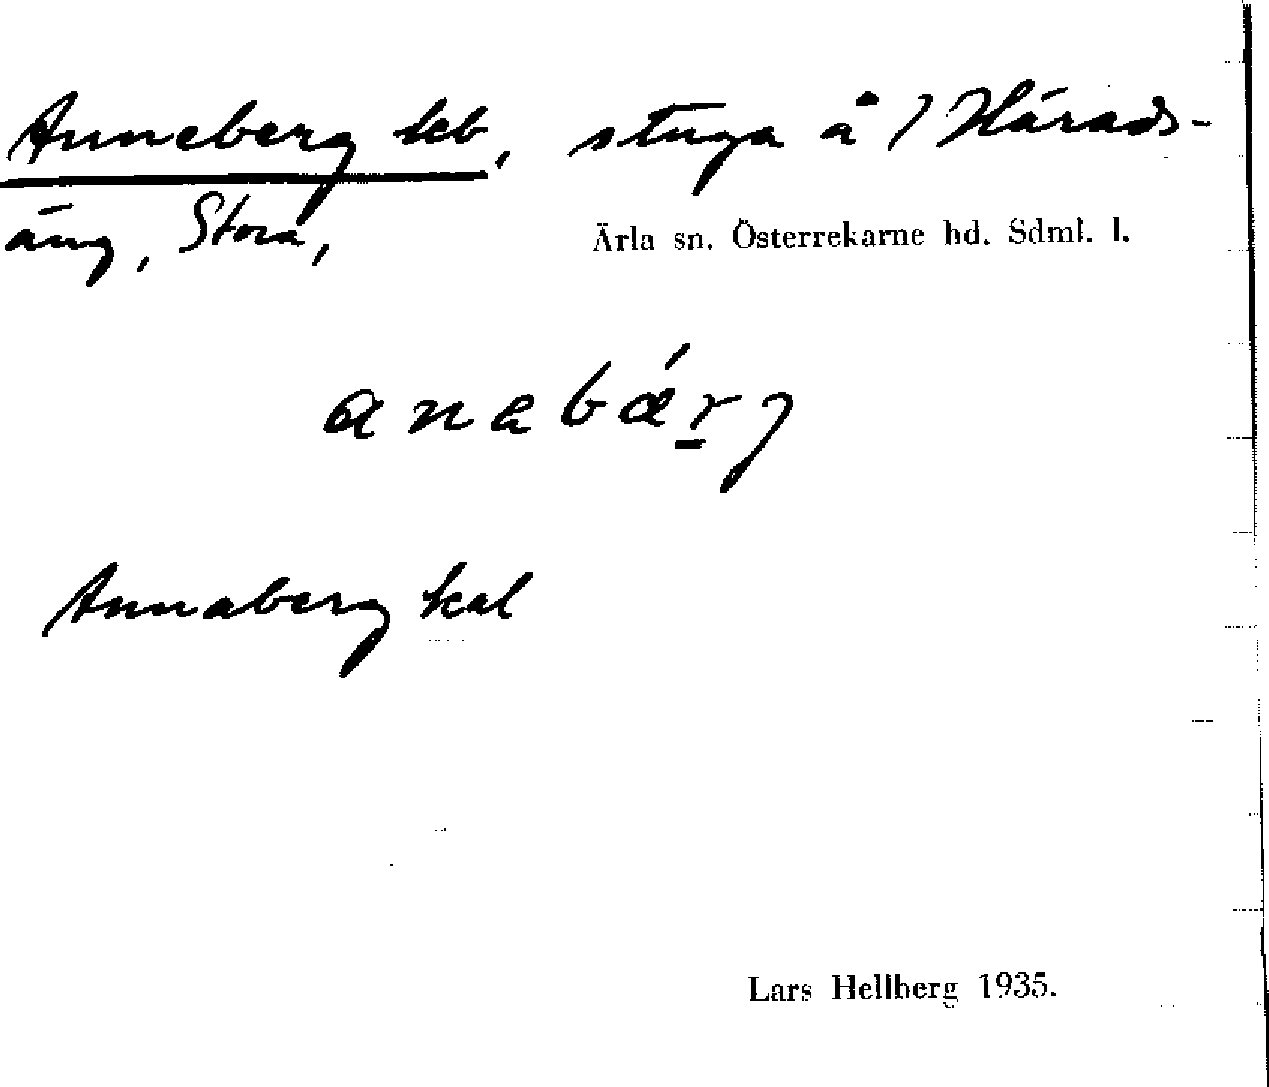 Anneberg leb, stuga å 1 Härads-
äng, Stora,
Ärla sn. Österrekarne hd. Sdml. l.
anabǽrj
Annaberg kal
Lars Hellberg 1935.